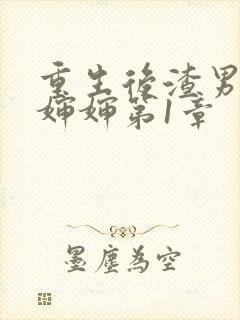 重生後渣男
婶婶第1章
墨塵為空